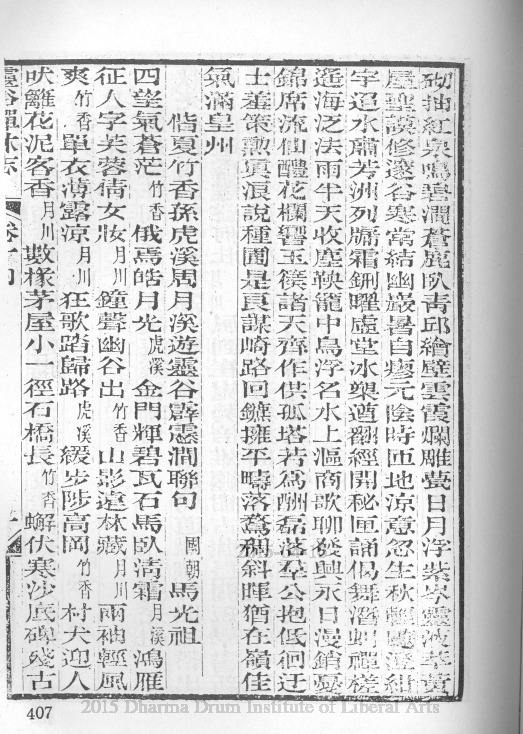 砌抽紅泉鳴碧澗蒼鹿臥靑邱繪壁雲霞爛雕甍日月浮紫炎
聖謨修邃谷寒常結幽巖暑自瘳元陰時匝地涼意忽生秋
宇迢水肅芳洲列牖霜鉶曜虛堂冰槃遒翻經開祕匣誦偈舞潛虯禪槎
遙海泛法雨半天收塵鞅籠中鳥浮名水上漚商歌聊發興永日漫銷憂
錦席流仙醴花欄響玉篌諸天齊作供孤塔若為酬磊落羣公抱低徊迂
士羞策勲眞浪說種圃是良謀崎路回鑣擁平疇落蓋稠斜暉猶在嶺佳
氣滿皇州
偕夏竹香孫虎溪周月溪遊靈谷霹靂澗聯句 國朝 馬光祖
四望氣蒼茫竹香俄焉皓月光虎溪金門輝碧瓦石馬臥淸霜月溪鴻雁
征人字芙蓉倩女妝月川鐘聲幽谷出竹香山影遠林藏月川兩袖輕風
爽竹香單衣薄露涼月川狂歌踏歸路虎溪緩步陟高岡竹香村犬迎人
吠籬花泥客香月川數椽茅屋小一徑石橋長竹香蠏伏寒沙底碑殘古
靈谷禪林志 卷十四
407
2015 Dharma Drum Institute of Liberal Arts